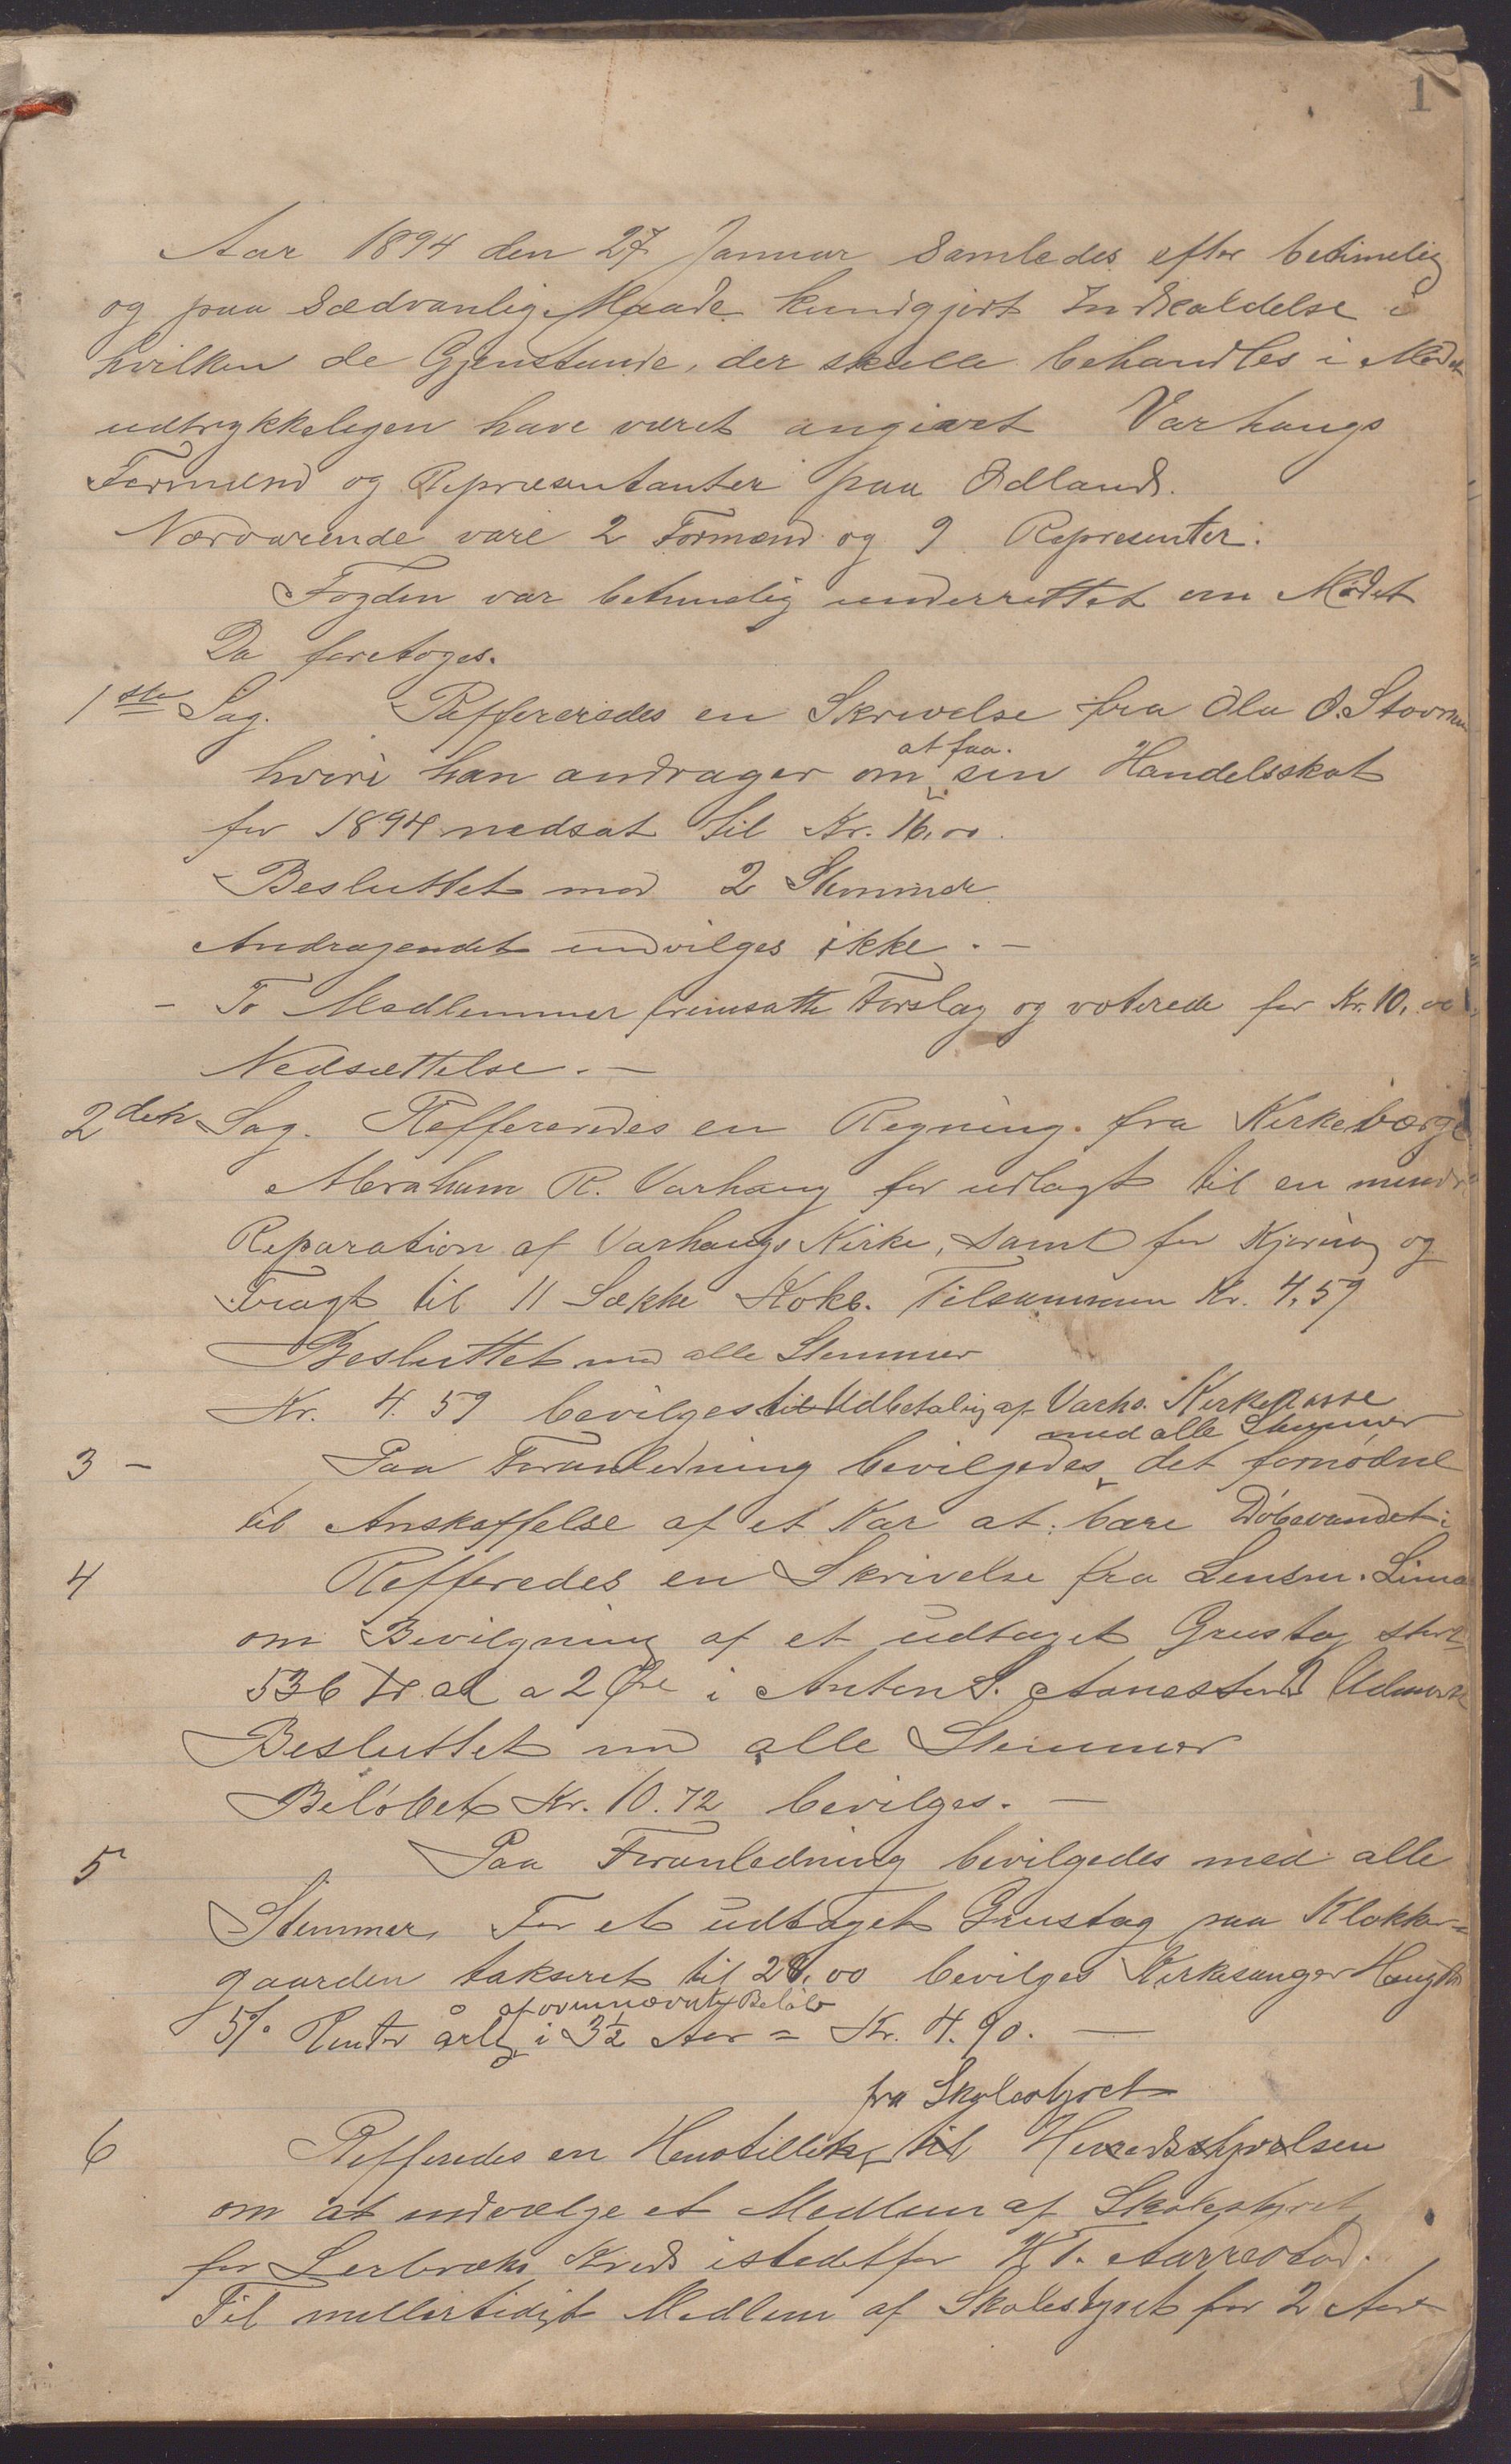 1
Aar 1894 den 27 Januar samledes efter betimelig
og paa sædvanlig Maade kundgjort Indkaldelse i
hvilken de Gjenstande, der skulle behandles i Mødet
udtrykkeligen have været angivet Varhaugs
Formænd og Repræsentanter paa Ødland.
Nærværende vare 2 Formænd og 9 Representer.
Fogden var betimelig underrettet om Mødet
Da foretoges.
1ste Sag. Reffereredes en Skrivelse fra Ola O. Stavnem
hvori han andrager om at faa sin Handelsskat
for 1894 nedsat til Kr. 16,00.
Besluttet mod 2 Stemmer
Andragendet indvilges ikke. —
– To Medlemmer fremsatte Forslag og voterede for Kr. 10,00
Nedsættelse. —
2den Sag. Reffereredes en Regning fra Kirkeværge
Abraham R. Varhaug for udlagt til en mindre
Reparation af Varhaugs Kirke, samt for Kjøring og
Fragt til 11 Sække Koks. Tilsammen Kr. 4,59
Besluttet med alle Stemmer
Kr. 4.59 bevilges til Udbetaling af Varhs. Kirkekasse
3 – Paa Foranledning bevilgedes med alle Stemmer det fornødne
til Anskaffelse af et Kar at bære Døbevandet i
4 Refferedes en Skrivelse fra Lensm. Lima
om Bevilgning af et udtaget Grustag stort
536 al a 2 Øre i Anton S. Aanestad Udmark
Besluttet med alle Stemmer
Beløbet Kr. 10.72 bevilges. —
5 Paa Foranledning bevilgedes med alle
Stemmer, For et udtaget Grustag paa Klokker=
gaarden takseret til 28,00 bevilges Kirkesanger
5% Renter årlig af ovennævnte Beløb i 3½ Aar = Kr. 4.90. —
6 Refferedes en Henstillelse fra Skolestyret til Heredsstyrelsen
om at indvælge et Medlem af Skolestyret
for Lerbræks Kreds istedetfor K. T. Aarrestad.
Til midlertidigt Medlem af Skolestyret for 2 Aar